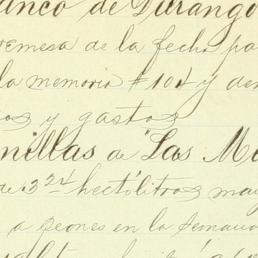 anco de Durango
remesa de la fecha pa
la memoria #104 y de
os y gastos
nillas de "Las M
de 3 24 hectólitros ma
a peones en la semana